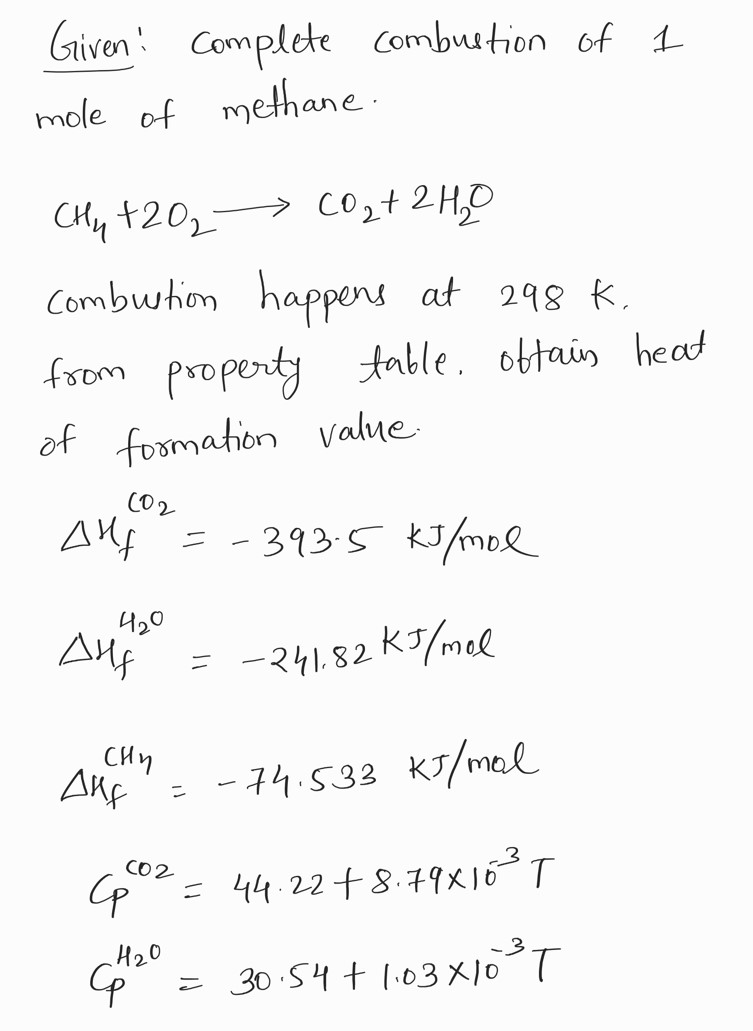 Given: Complete combustion of 1
mole of methane.
CH4 + 2O2 → CO2 + 2H2O
Combustion happens at 298 K.
from property table. obtain heat
of formation value.
ΔHf^CO2 = -393.5 KJ/mol
ΔHf^H2O = -241.82 KJ/mol
ΔHf^CH4 = -74.533 KJ/mol
Cp^CO2 = 44.22 + 8.79×10^-3 T
Cp^H2O = 30.54 + 1.03×10^-3 T